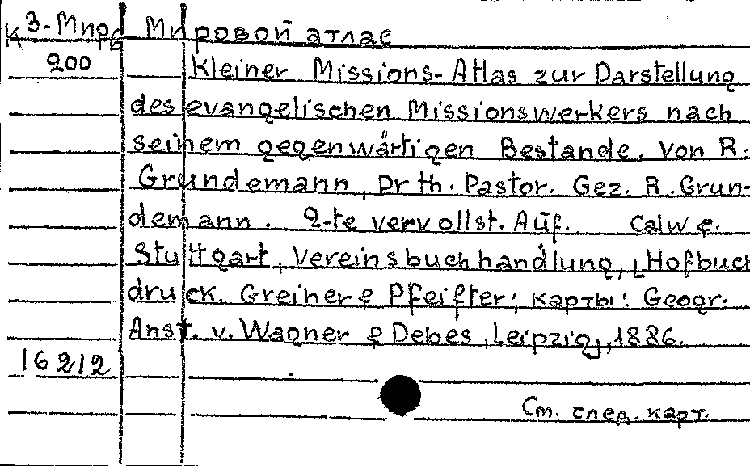 К 3-Мир Мировой атлас
200 Kleiner Missions-Atlas zur Darstellung
des evangelischen Missionswerkers nach
seinem gegenwärtigen Bestande. Von R.
Grundemann, Dr th. Pastor. Gez. R. Grun-
demann. 2-te vervollst. Auf. Calw &.
Stuttgart, Vereinsbuchhandlung, [Hofbuch
druck. Greiner & Pfeiffer; карты: Geogr.
Anst. v. Wagner & Debes, Leipzig], 1886.
16212
См. след. карт.